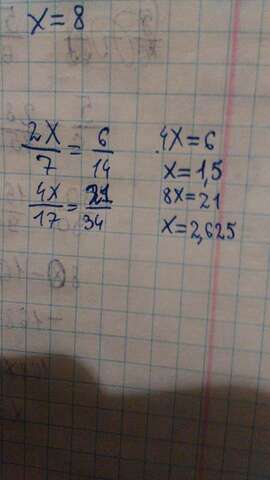 x = 8
2x/7 = 6/14
4x = 6
x = 1,5
4x/17 = 21/34
8x = 21
x = 2,625